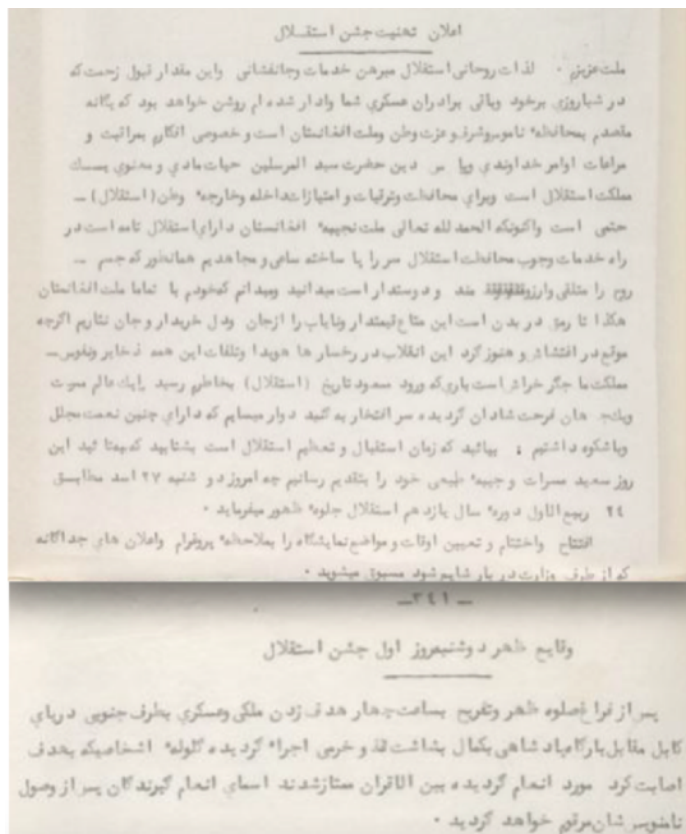 اعلان تهنیت جشن استقلال
ملت عزیزم • لذات روحانی استقلال مبرهن خدمات وجانفشانی واین مقدار قبول زحمت که
در شباروزی برخود وباقی برادران عسکری شما وادار شده ام روشن خواهد بود که یگانه
مقصدم بمحافظهٔ ناموس وشرف و عزت وطن وملت افغانستان است و خصوصی افکارم بمراتب و
مراعات اوامر خداوندی وپا دین حضرت سید المرسلین حیات مادي و معنوي یسمك
مملکت استقلال است وبراي محافظت وترقیات و امتیازات داخله وخارجهٔ وطن (استقلال) ــ
حتمی است واکنونکه الحمد لله تعالی ملت نجیبهٔ افغانستان داراي استقلال تامه است در
راه خدمات وجوب محافظت استقلال سر را پا ساخته ساعی و مجاهدیم همانطور که جسم ــ
روح را متلقی وارزو مند و دوستدار است میدانید ومیدانم که خودم با تماما ملت افغانستان
هکذا تا رمق در بدن است این متاع قیمتدار ونایاب را ازجان ودل خریدار و جان نثاریم اگرچه
موقع در اغتشاش و هنوز گرد این انقلاب در رخسار ها هویدا وتلفات این همه ذخایر ونفوس ــ
مملکت ما جگر خراش است باری که ورود مسعود تاریخ (استقلال) بخاطرم رسید بایك عالم مسرت
ویك جهان فرحت شادان گردیده سر افتخار به گنبد دوار میسایم که داراي چنین نعمت مجلل
وباشکوه داشتیم ؛ بیائید که زمان استقبال و تعظیم استقلال است بشتابید که بتائید این
روز سعید مسرات و جیبهٔ طبیعی خود را بتقدیم رسانیم چه امروز دو شنبه ۲۷ اسد مطابق
۲٤ ربیع الاول دورهٔ سال یازدهم استقلال جلوهٔ ظهور میفرماید •
افتتاح واختتام و تعیین اوقات و مواضع نمایشگاه را بملاحظهٔ پروغرام واعلان هاي جداگانه
که از طرف وزارت دربار شایع شود مسبوق میشوید •
ــ ۳٤۱ ــ
وقایع ظهر دوشنبه روز اول جشن استقلال
پس از فراغ صلوه ظهر وتفریح بساعت چهار هدف زدن ملکی وعسکري بطرف جنوبی دریاي
کابل مقابل بارگاه پاد شاهی بکمال بشاشت قد و خرمی اجراء گردیده گلولهٔ اشخاصیکه بهدف
اصابت کرد مورد انعام گردیده بین الاقران ممتاز شدند اسماي انعام گیرندگان پس از وصول
نامنویس شان مرقوم خواهد گردید •